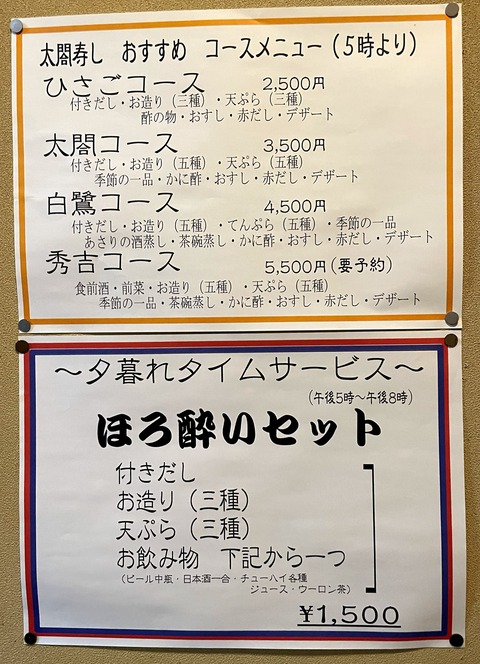 太閤寿し おすすめ コースメニュー（５時より）
ひさごコース 2,500円
付きだし・お造り（三種）・天ぷら（三種）
酢の物・おすし・赤だし・デザート
太閤コース 3,500円
付きだし・お造り（五種）・天ぷら（五種）
季節の一品・かに酢・おすし・赤だし・デザート
白鷺コース 4,500円
付きだし・お造り（五種）・てんぷら（五種）・季節の一品
あさりの酒蒸し・茶碗蒸し・かに酢・おすし・赤だし・デザート
秀吉コース 5,500円（要予約）
食前酒・前菜・お造り（五種）・天ぷら（五種）
季節の一品・茶碗蒸し・かに酢・おすし・赤だし・デザート
～夕暮れタイムサービス～
（午後5時～午後8時）
ほろ酔いセット
付きだし
お造り（三種）
天ぷら（三種）
お飲み物 下記から一つ
（ビール中瓶・日本酒一合・チューハイ各種
ジュース・ウーロン茶）
¥1,500